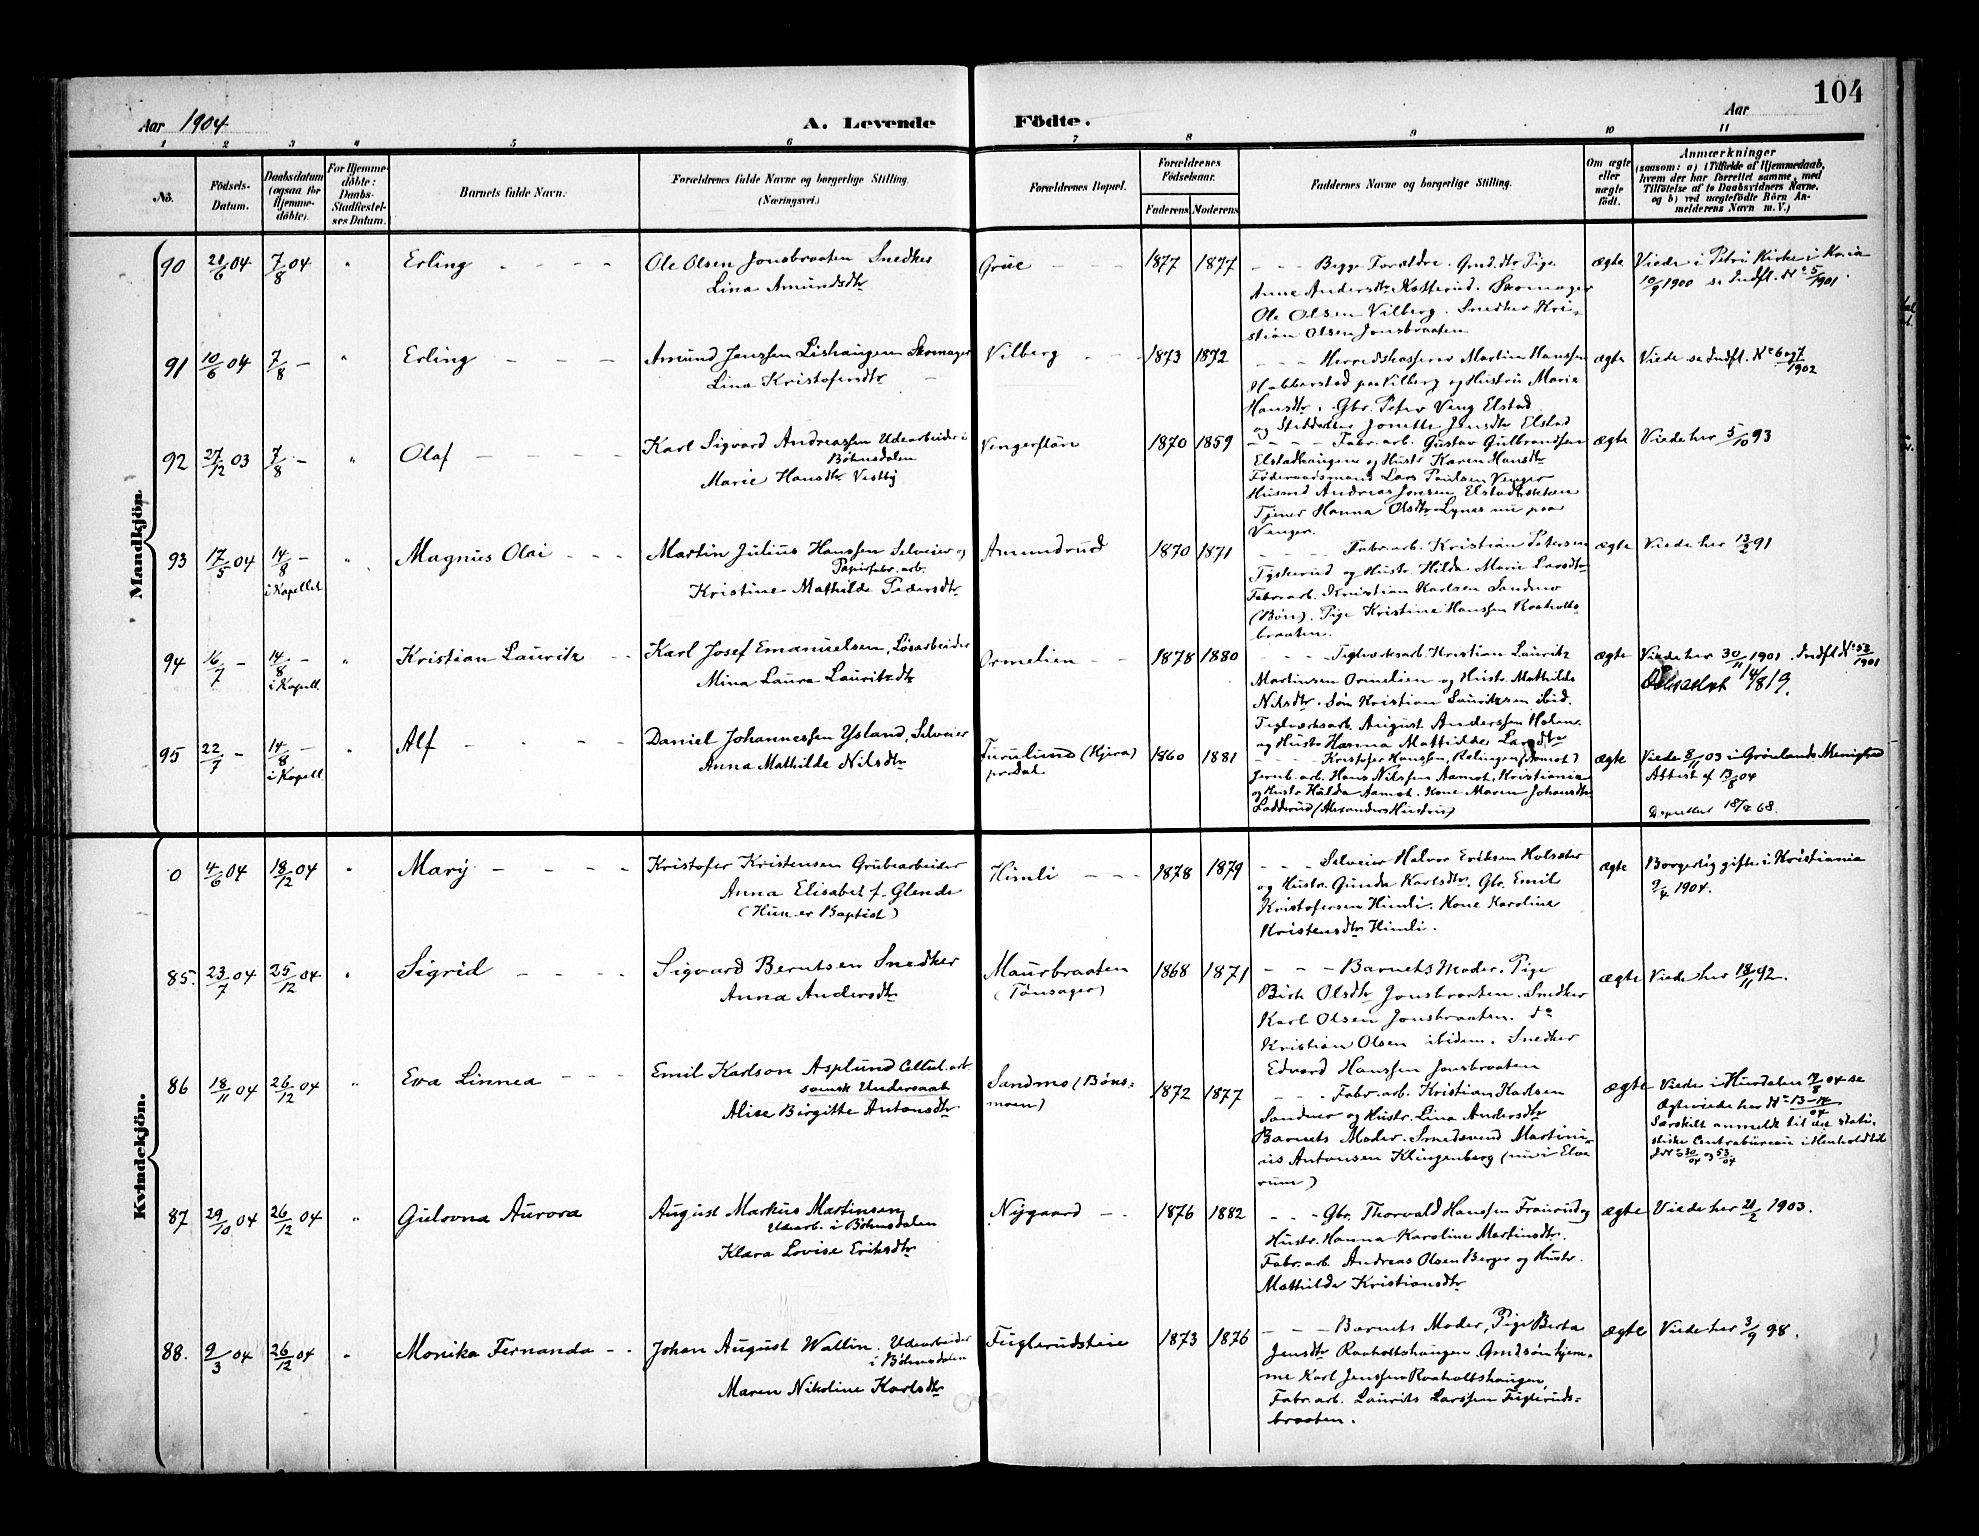 104
Aar 1904
A. Levende
Födte.
Aar
1 2 3 4 5 6 7 8 9 10 11
No.
Födsels-
Datum.
Daabsdatum
(ogsaa for
Hjemme-
döbte).
For Hjemme-
döbte:
Daabs-
Stadfæstel-
ses Datum.
Barnets fulde Navn.
Forældrenes fulde Navne og borgerlige Stilling.
(Næringsvei.)
Forældrenes Bopæl.
Forældrenes
Födselsaar.
Faderens
Moderens
Faddernes Navne og borgerlige Stilling.
Om ægte
eller
uægte
født.
Anmærkninger
(saasom: a) i Tilfælde af Hjemmedaab,
hvem der har forrettet samme, med
Tilföielse af to Daabsvidners Navne,
og b) ved uægtefödte Börn An-
melderens Navn m. V.)
Mandkjön.
90 21/6 04 7/8 04 " Erling
Ole Olsen Jonsbraaten Snedker
Lina Amundsdtr
Grue 1877 1877
Begge Forældre. Gmd.dtr Pige
Anne Andersdtr Katterud. Skomager
Ole Olsen Vilberg. Snedker Kri-
stian Olsen Jonsbraaten
ægte
Viede i Petri Kirke i Kr.ia
10/9 1900 se Indfl. No 5/1901.
91 10/6 04 7/8 — " Erling
Amund Jenssen Lishaugen Skomager
Lina Kristofersdtr
Vilberg 1873 1872
Herredskasserer Martin Hanssen
Habberstad paa Vilberg og Hustru Marie
Hansdtr. Gbr. Peter Veng Elstad
og Steddatter Jonette Jensdtr Elstad
ægte
Viede se Indfl. No 6 og 7/1902
92 27/12 03 7/8 — " Olaf
Karl Sigvard Andreassen Udearbeider i
Böhnsdalen
Marie Hansdtr Vestby
Vengerflön 1870 1859
Fabr. arb. Gustav Gulbrandsen
Elstadhaugen og Hustr Karen Hansdtr
Föderaadsmand Lars Paulsen Venger
Husmd Andreas Jensen Elstadbakken
Tjener Hanna Olsdtr Lynes nu paa
Venger.
ægte
Viede her 5/10 93
93 17/5 04 14/8 — " Magnus Olai
i Kapellet
Martin Julius Hanssen Selveier og
Papirfabr. arb.
Kristine Mathilde Pedersdtr
Amundrud 1870 1871
Fabr. arb. Kristian Petersen
Tyskerud og Hustr. Hilda Marie Larsdtr
Fabr. arb. Kristian Karlsen Sandmo
(Bön). Pige Kristine Hanssen Raaholts-
braaten.
ægte
Viede her 13/2 91
94 16/7 — 14/8 — " Kristian Lauritz
i Kapell.
Karl Josef Emanuelsen, Lösarbeider
Mina Laura Lauritzdtr
Ormelien 1878 1880
Teglværksarb. Kristian Lauritz
Martinsen Ormelien og Hustr. Mathilde
Nilsdtr. Sön Kristian Lauritzsen ibid.
Teglværksarb. August Anderssen Holen
og Hustr Hanna Mathilde Larsdtr
ægte
Viede her 30/11 1901. Indfl No 53/1901
14/8 19.
95 22/7 — 14/8 — " Alf
i Kapell
Daniel Johannessen Ysland, Selveier
Anna Mathilde Nilsdtr
Furulund (Hjera)
1860 1881
Kristofer Hanssen, Rælingen (Aamot)
Jernb. arb. Hans Nilssen Aamot, Kristiania
og Hustr Hulda Aamot. Kone Maren Johansdtr
Ladderud (Alexanders Hustru)
ægte
Viede 8/11 03 i Grönlands Menighed
Attest af 13/8 04
18/ 68.
Kvindekjön.
0 4/6 04 18/12 04 " Mary
Kristofer Kristensen Grubearbeider
Anna Elisabet f. Glende
(Hun er Baptist)
Himli 1878 1879
Selveier Halvor Eriksen Holseter
og Hustr. Gunda Karlsdtr. Gbr. Emil
Kristofersen Himli. Kone Karoline
Kristensdtr Himli.
ægte
Borgerlig gifte i Kristiania
2/4 1904.
85. 23/7 04 25/12 04 " Sigrid
Sigvard Berntsen Snedker
Anna Andersdtr
Maurbraaten
(Tönsager)
1868 1871
Barnets Moder. Pige
Birte Olsdtr Jonsbraaten. Snedker
Karl Olsen Jonsbraaten. do
Kristian Olsen ibidem. Snedker
Edvard Hanssen Jonsbraaten
ægte
Viede her 18/11 92.
86 18/11 04 26/12 04 " Eva Linnea
Emil Karlson Asplund Cellul. arb.
svensk Undersaat
Alise Birgitte Antonsdtr
Sandmo (Böns-
moen)
1872 1877
Fabr. arb. Kristian Karlsen
Sandmo og Hustr. Lina Andersdtr
Barnets Moder. Smedsvend Martini-
us Antonsen Klingenberg (nu i Elve-
rum)
ægte
Viede i Hurdalen 14/8 04 se
Ægteviede her No 13-14/04
Særskilt anmeldt til det stati-
stiske Centralbureau i Henhold til
No 30/04 og 53/04
87 29/10 04 26/12 04 " Gulovna Aurora
August Markus Martinsen
Udearb. i Böhnsdalen
Klara Lovise Eriksdtr
Nygaard 1876 1882
Gbr. Thorvald Hanssen Fraurud og
Hustr. Hanna Karoline Martinsdtr.
Fabr. arb. Andreas Olsen Berger og Hustr.
Mathilde Kristiansdtr
ægte
Viede her 21/2 1903.
88. 9/3 04 26/12 04 " Monika Fernanda
Johan August Wallin. Udearbeider
i Böhnsdalen
Maren Nikoline Karlsdtr
Fuglerudsteie 1873 1876
Barnets Moder, Pige Berta
Jensdtr Raaholtshaugen. Gmdsön hjem-
me Karl Jenssen Raaholtshaugen,
Fabr. arb. Laurits Larssen Fuglerudsd-
braaten.
ægte
Viede her 3/9 98.